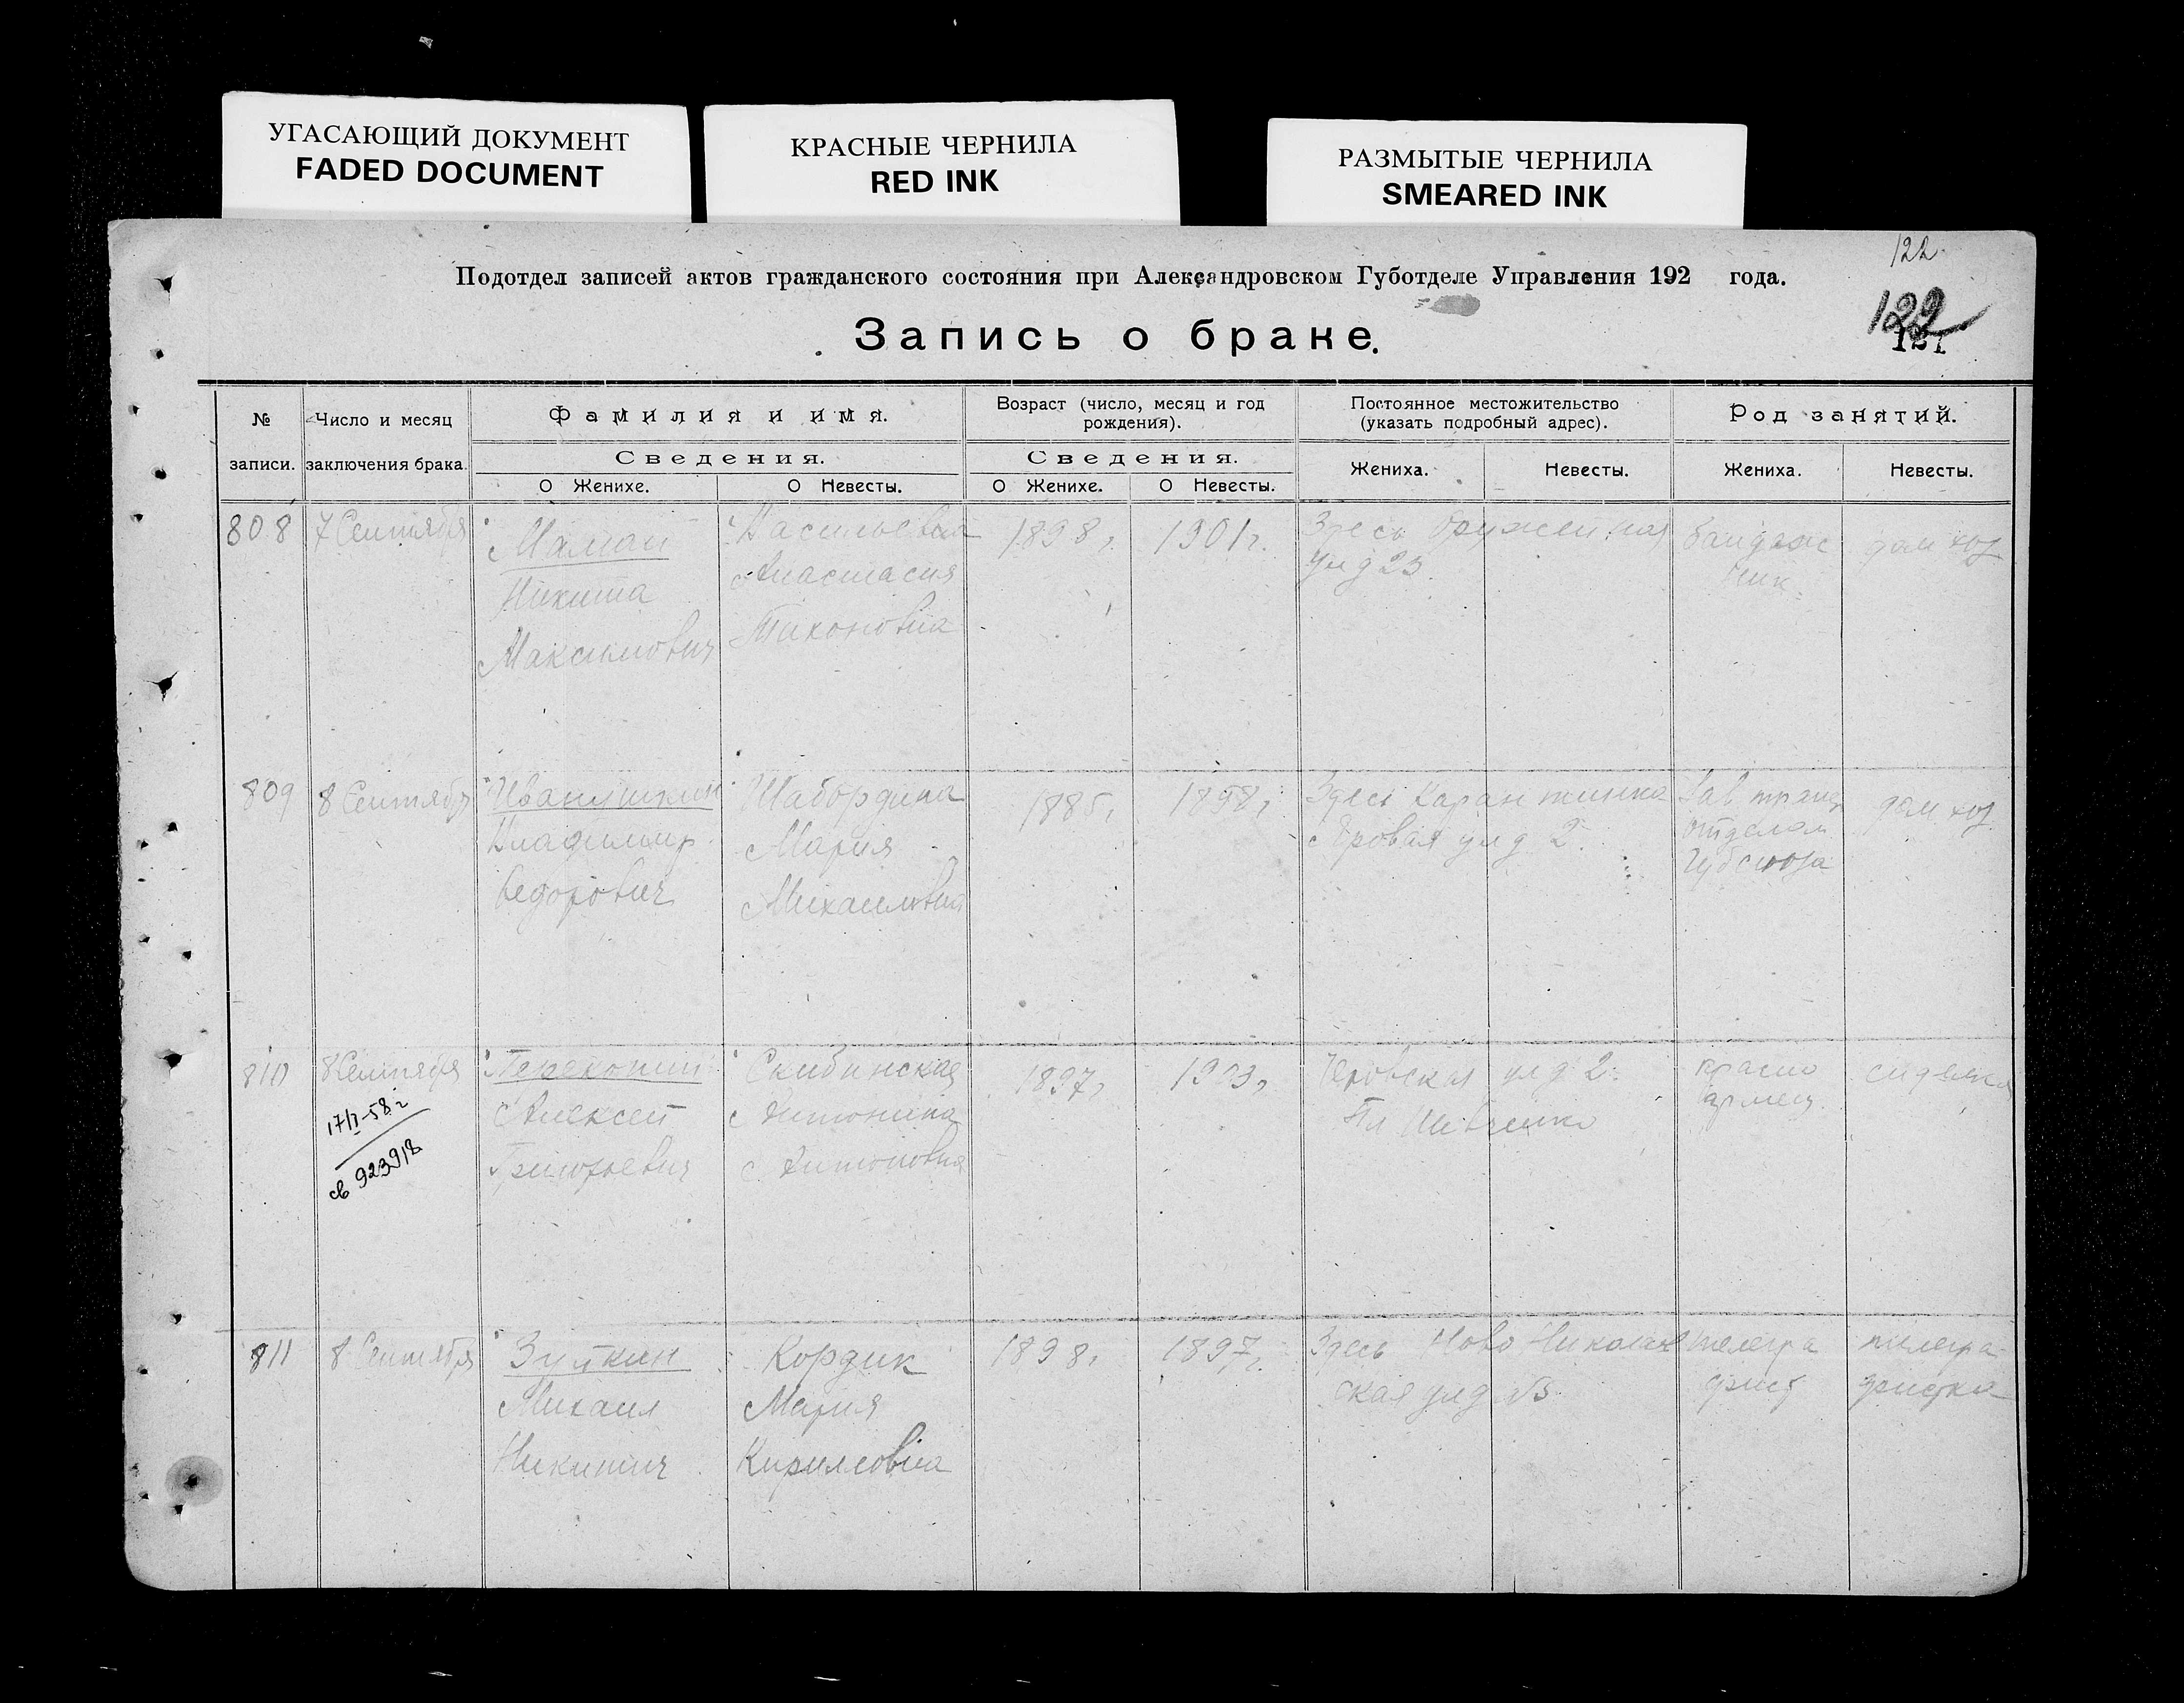 УГАСАЮЩИЙ ДОКУМЕНТ
FADED DOCUMENT
КРАСНЫЕ ЧЕРНИЛА
RED INK
РАЗМЫТЫЕ ЧЕРНИЛА
SMEARED INK
122
Подотдел записей актов гражданского состояния при Александровском Губотделе Управления 192 года.
122
121
Запись о браке.
№ записи.
Число и месяц заключения брака.
Фамилия и имя.
Сведения.
О Женихе.
О Невесты.
Возраст (число, месяц и год
рождения).
Сведения.
О Женихе.
О Невесты.
Постоянное местожительство
(указать подробный адрес).
Жениха.
Невесты.
Род занятий.
Жениха.
Невесты.
808
7 Сентября
Мамай
Никита
Максимович
Васильевна
Анастасия
Тихоновна
1898г.
1901г.
Здесь
ул д 23.
дом хоз
809
8 Сентября
Иванушкин
Владимир
Федорович
Шабордина
Мария
Михайловна
1885г
1898г
Здесь
ул д 2.
Зав
отделом
Губсоюза
дом хоз
810
8 Сентября
17/I-58г
св 923918
Алексей
Григорьевич
Скибинская
Антонина
Антоновна
1897г
1903г
ул д 2.
Пл Шевченко
красно
армеец
811
8 Сентября
Зуйкин
Михаил
Никитич
Кордик
Мария
Кирилловна
1898г
1897г.
Здесь Ново Николаев
ская ул д №5
телегра
фист
телегра
фистка